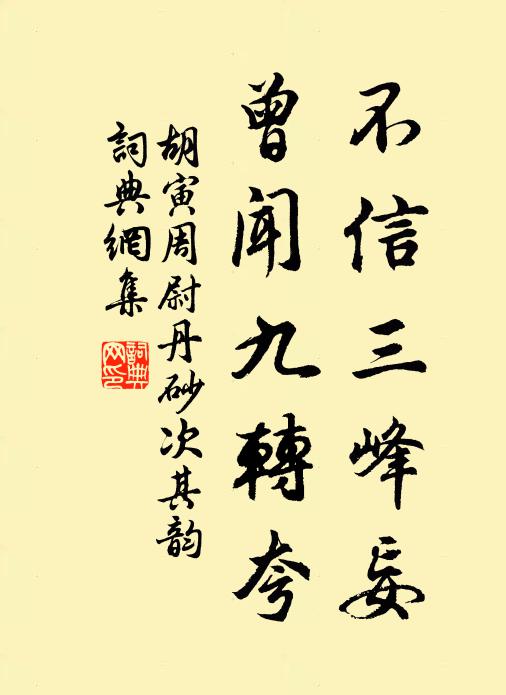 不信三峰妄
曾聞九轉夸
胡寅周尉丹砂次其韵
詞典網集
詞典網印